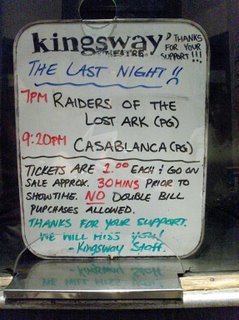 kingsway
THEATRE
THANKS
FOR YOUR
SUPPORT!!!
THE LAST NIGHT!!
7PM RAIDERS OF THE
LOST ARK (PG)
9:20PM CASABLANCA (PG)
TICKETS ARE 2.00 EACH & GO ON
SALE APPROX. 30MINS PRIOR TO
SHOWTIME. NO DOUBLE BILL
PUPCHASES ALLOWED.
THANKS FOR YOUR SUPPORT.
WE WILL MISS YOU!
- Kingsway Staff.